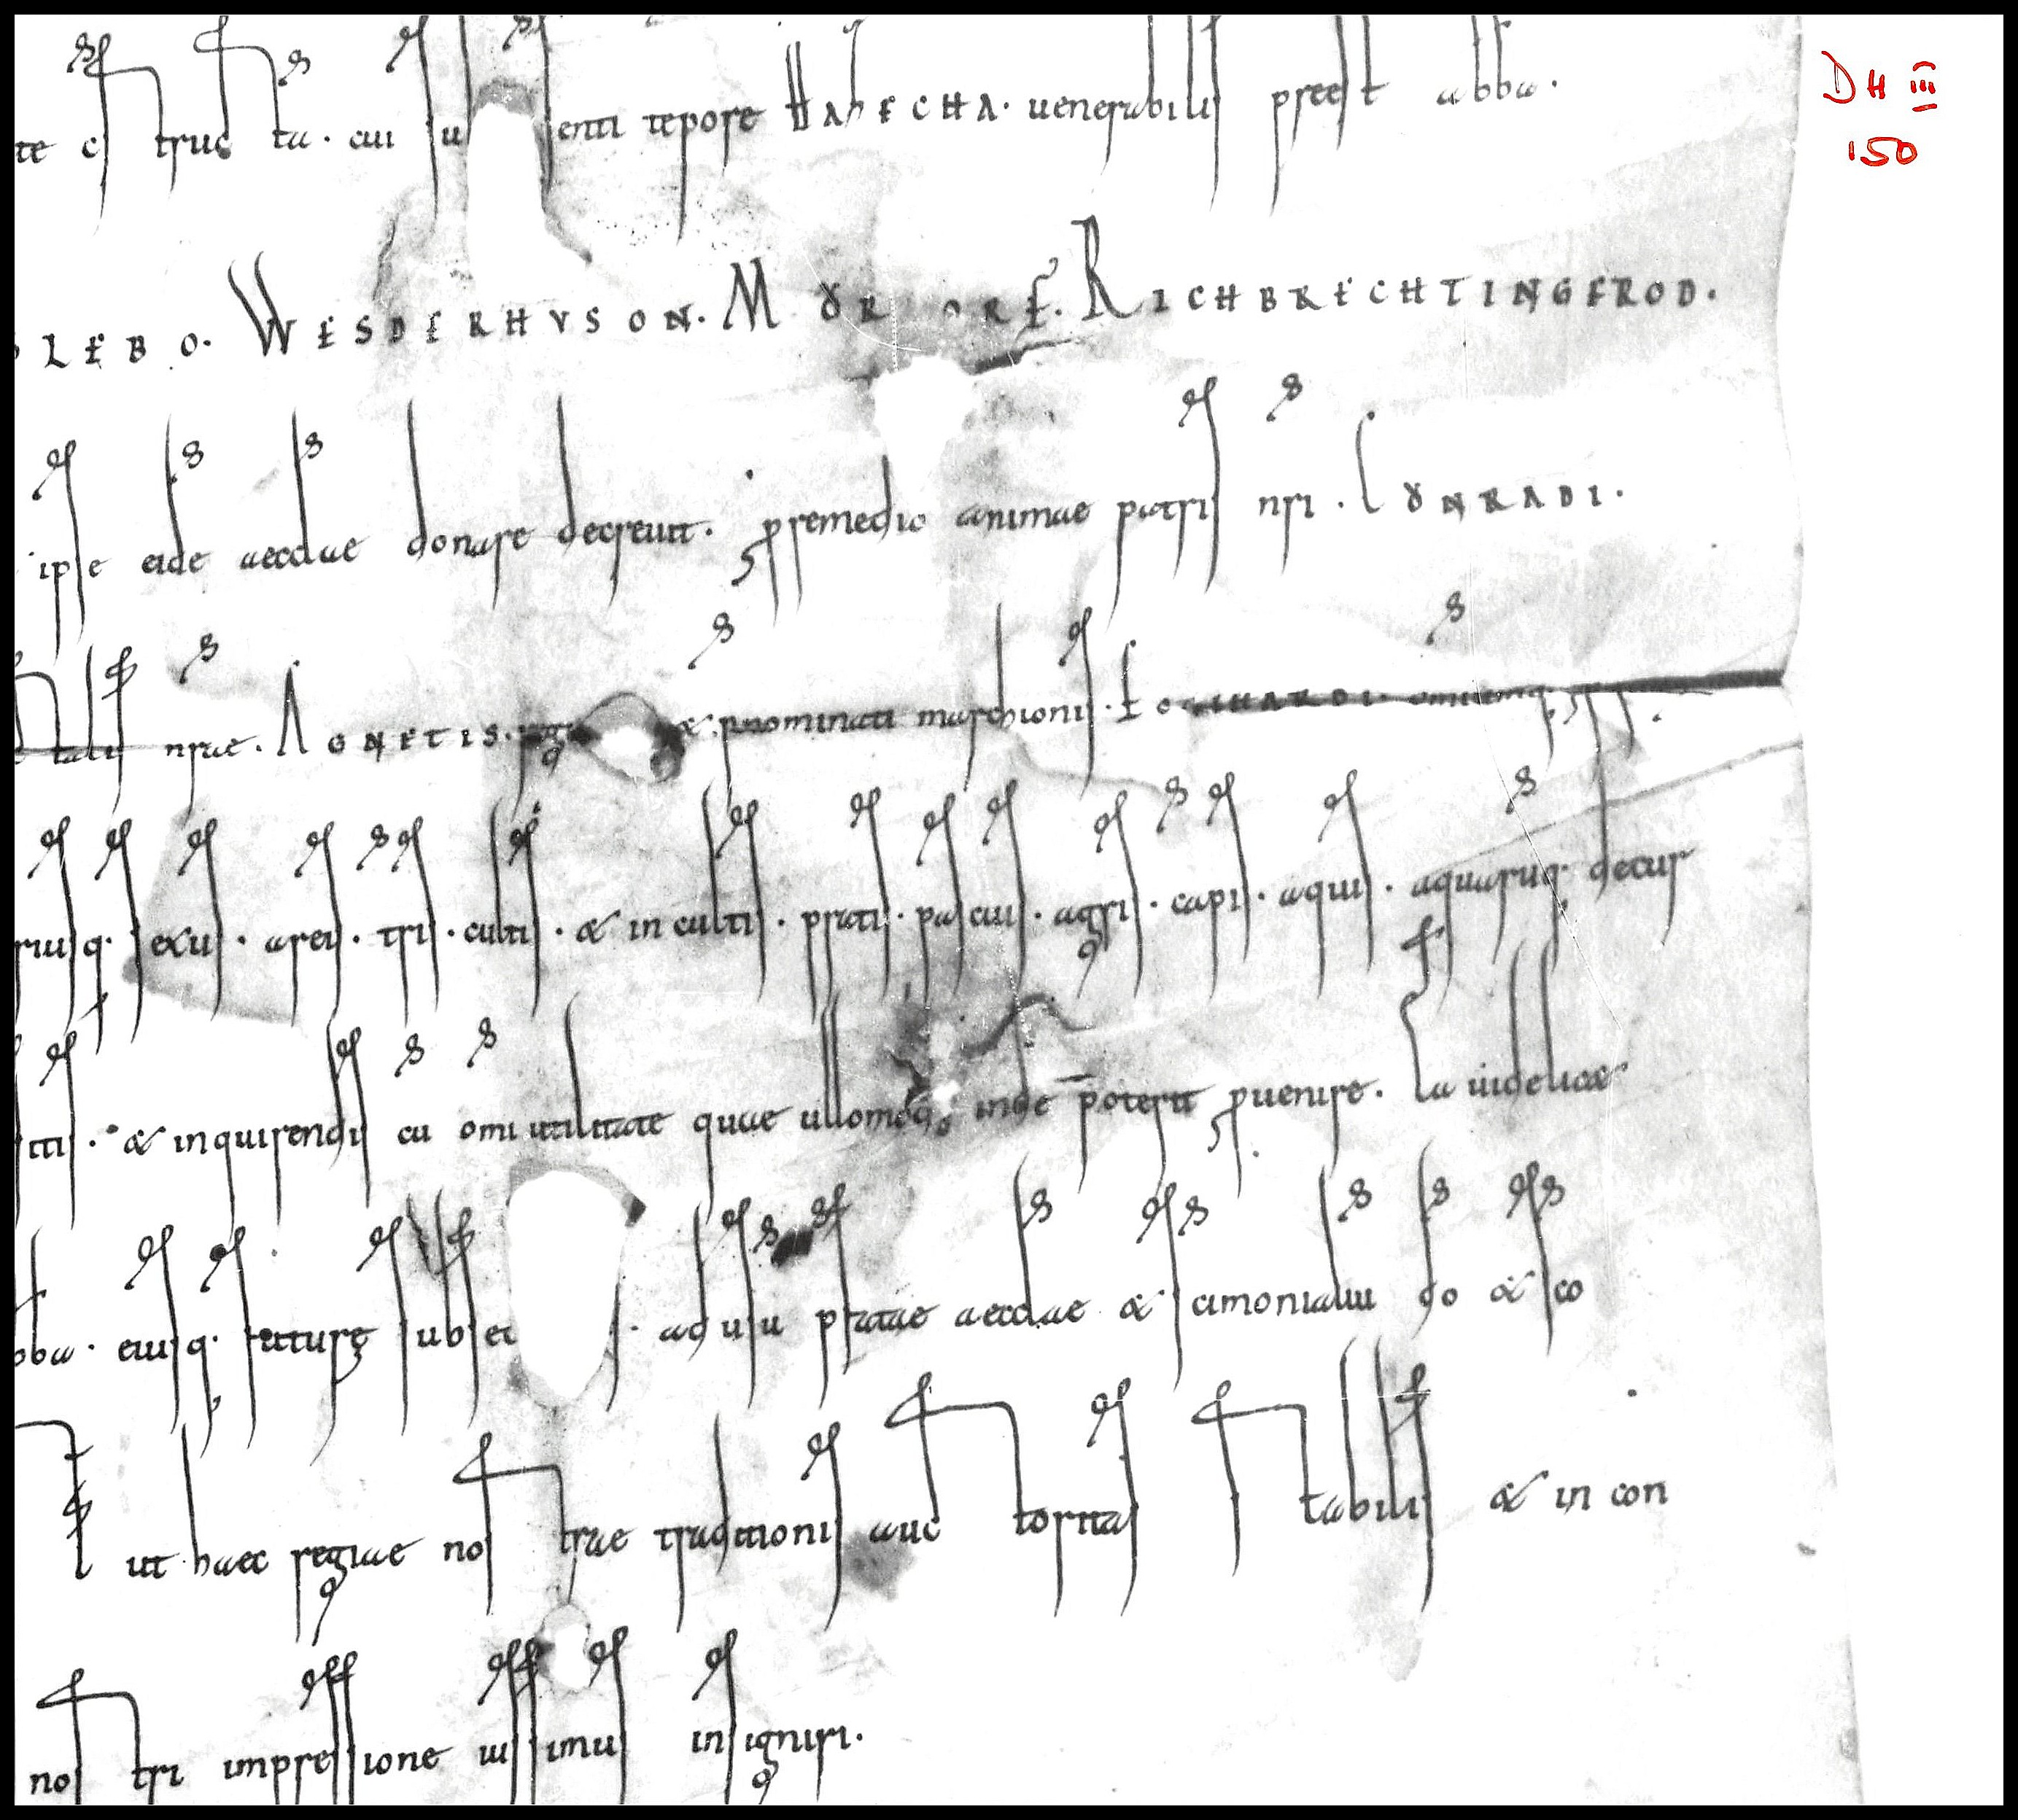 te c struc ta. cui su enti tepore HADECHA. uenerabilis preest abba.
DH III
150
LEBO. WESDERHVSON. M RICHBRECHTINGEROD.
ipse eide aecclae donare decreuit. p remedio animae patris nri. CONRADI.
talis nrae. AGNETIS. & pnominati marchionis. omniumq.
riusq. sexus. areis. tris. cultis. & in cultis. pratis. pascuis. agris. capis. aquis. aquarumq. decur
itis. & inquirendis cu omi utilitate quae ullomodo inde poterit puenire. Ea uidelicet
bba. eiusq. future subse s. ad usu pfatae aecclae & scimonialiu do & co
Et ut haec regiae nostrae traditionis auctoritas stabilis & in con
nostri impressione iussimus insigniri.